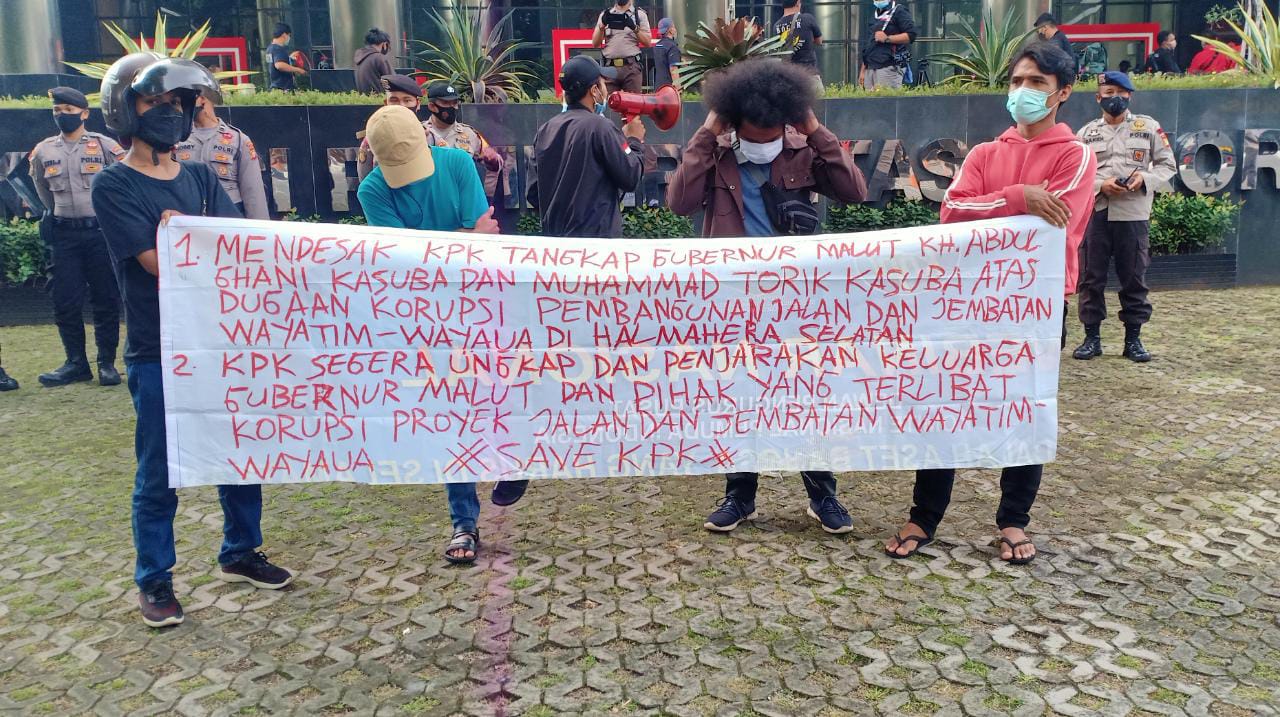 1. MENDESAK KPK TANGKAP GUBERNUR MALUT KH. ABDUL
GHANI KASUBA DAN MUHAMMAD TORIK KASUBA ATAS
DUGAAN KORUPSI PEMBANGUNAN JALAN DAN JEMBATAN
WAYATIM-WAYAUA DI HALMAHERA SELATAN
2. KPK SEGERA UNGKAP DAN PENJARAKAN KELUARGA
GUBERNUR MALUT DAN PIHAK YANG TERLIBAT
KORUPSI PROYEK JALAN DAN JEMBATAN WAYATIM-
WAYAUA # SAVE KPK #
POLRI
POLRI